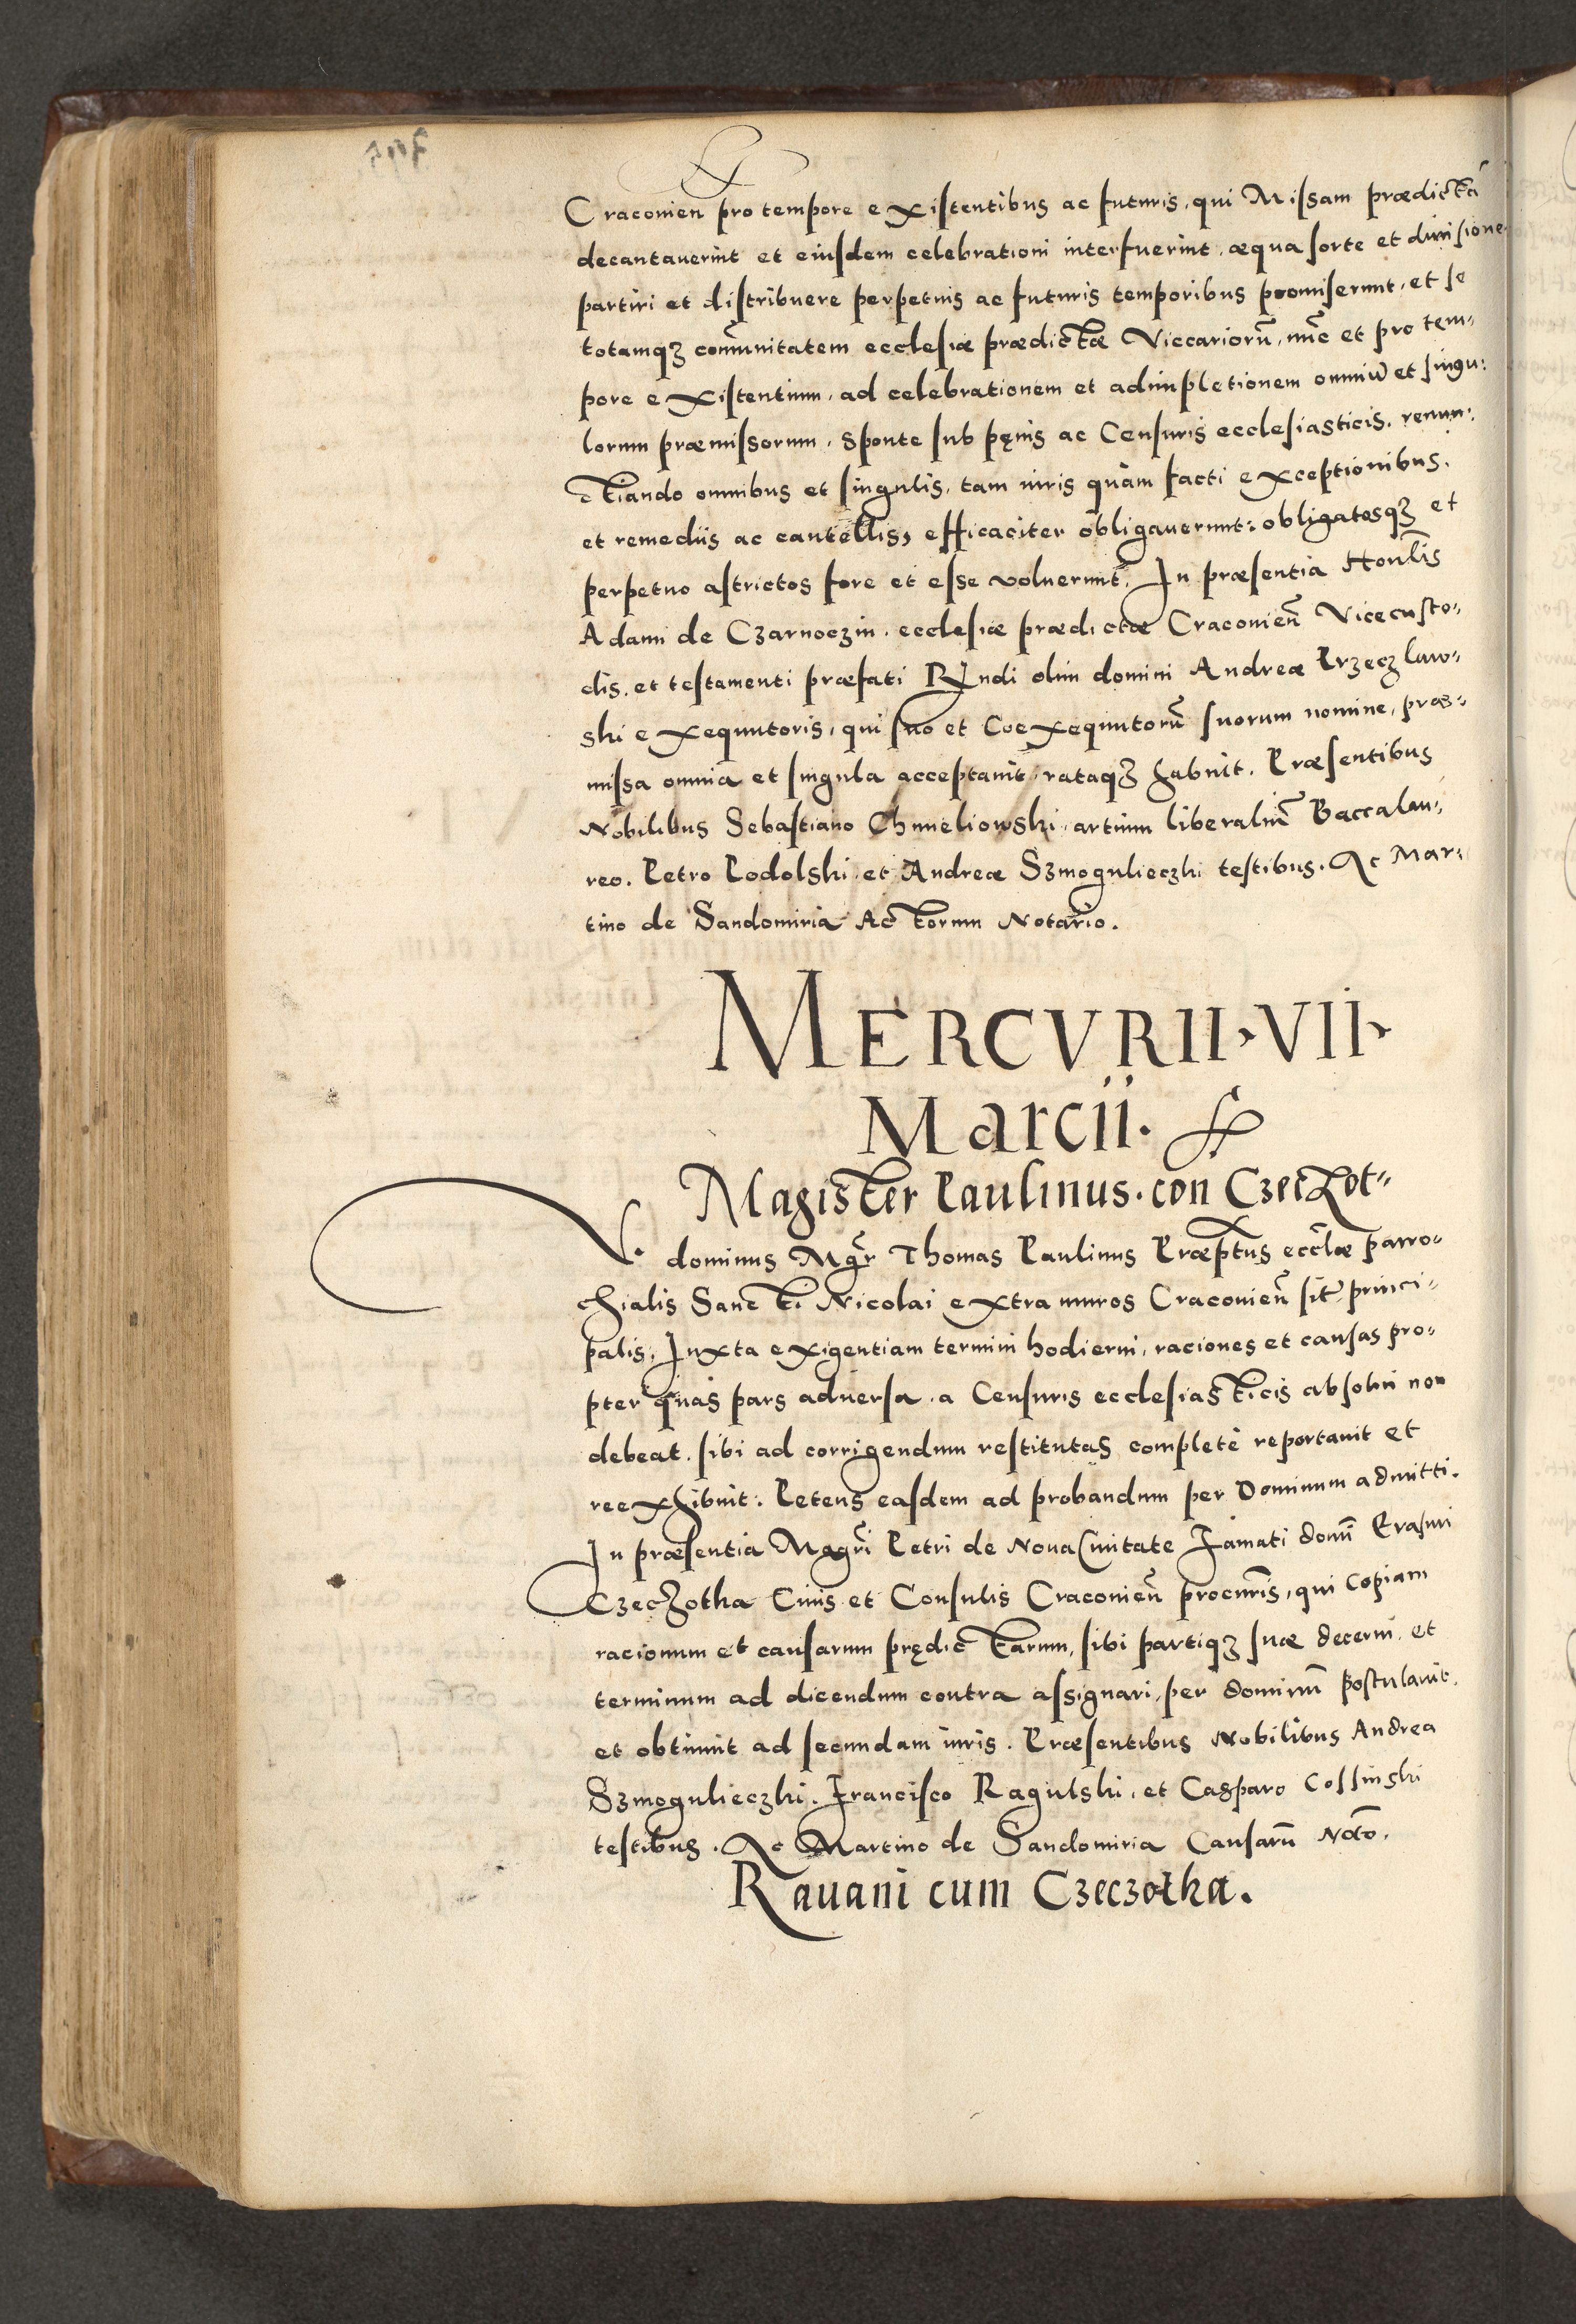 Craconien pro tempore existentibus ac futuris, qui Missam prædictā
decantauerint et eiusdem celebrationi interfuerint, æqua sorte et diuisione
partiri et distribuere perpetuis ac futuris temporibus promiserunt, et se
totamqʒ com̄unitatem ecclesiæ prædictæ Viccariorū, nūc et pro tem⸗
pore existentium, ad celebrationem et adimpletionem omniū et singu⸗
lorum præmissorum, sponte sub pęnis ac Censuris ecclesiasticis, renun⸗
ctiando omnibus et singulis, tam iuris quàm facti exceptionibus,
et remediis ac cautellis, efficaciter obligauerunt: obligatosqʒ et
perpetuo astrictos fore et esse voluerunt. In præsentia Honl̄is
Adami de Czarnoczin, ecclesiæ prædictæ Craconien̄ Vicecusto⸗
dis, et testamenti præfati Rn̄di olim domini Andreæ Przeczlaw⸗
ski exequutoris, qui suo et Coexequutorū suorum nomine, præ⸗
missa omnia et singula acceptauit, rataqʒ habuit. Præsentibus
Nobilibus Sebastiano Chmeliowski, artium liberaliū Baccalau⸗
reo. Petro Podolski, et Andrea Szmogulieczki testibus. Ac Mar⸗
tino de Sandomiria Actorum Notario.
MERCVRII·VII·
Marcii.
Magister Paulinus. con Czeczot⸗
V. dominus Mgr̄ Thomas Paulinus Præptūs eccl̄æ parro⸗
chialis Sancti Nicolai extra muros Craconien̄ sit̄ princi⸗
palis, Iuxta exigentiam termini hodierni, raciones et causas pro⸗
pter quas pars aduersa, a Censuris ecclesiasticis absolui non
debeat, sibi ad corrigendum restitutas completè reportauit et
reexhibuit: Petens easdem ad probandum per Dominum admitti.
In præsentia Magrī Petri de Noua Ciuitate Famati domī Erasmi
Czeczotha Ciuis et Consulis Craconien̄ procuris̄, qui Copiam
racionum et causarum prędictarum, sibi partiqʒ suæ decerni, et
terminum ad dicendum contra assignari, per dominū postulauit,
et obtinuit ad secundam iuris. Præsentibus Nobilibus Andrea
Szmogulieczki. Francisco Ragulski, et Casparo Cossinski
testibus. Ac Martino de Sandomiria Causarū Notō.
Rauani cum Czeczotha.